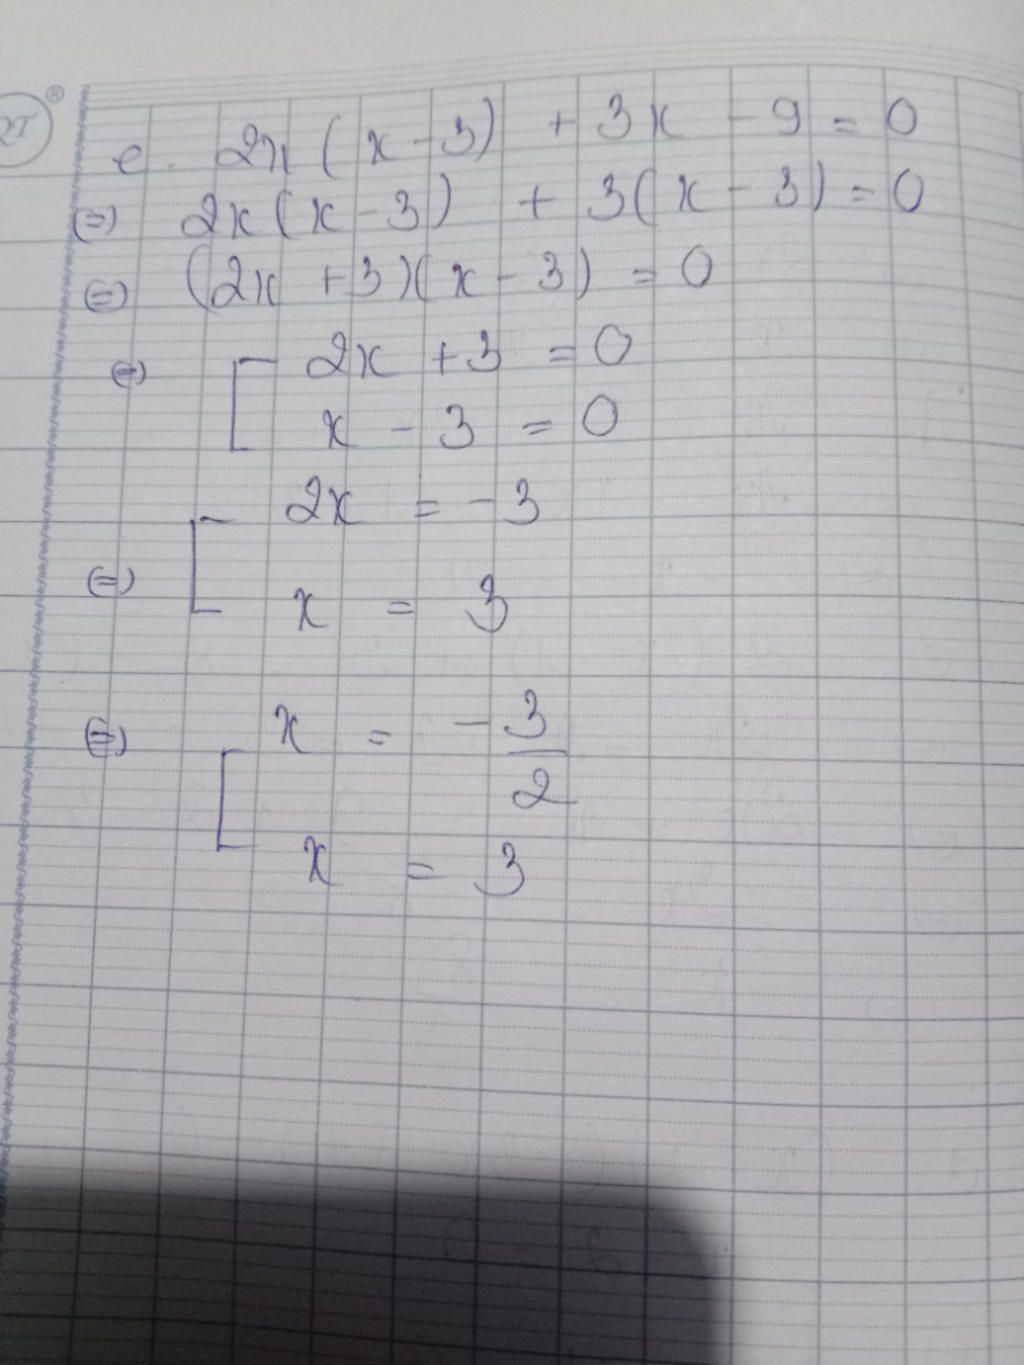 ®
e. 2x(x-3) + 3x - 9 = 0
(=) 2x(x-3) + 3(x-3) = 0
(=) (2x+3)(x-3) = 0
(=) [ 2x + 3 = 0
x - 3 = 0
[ 2x = -3
(=) x = 3
(=) [ x = -3/2
x = 3